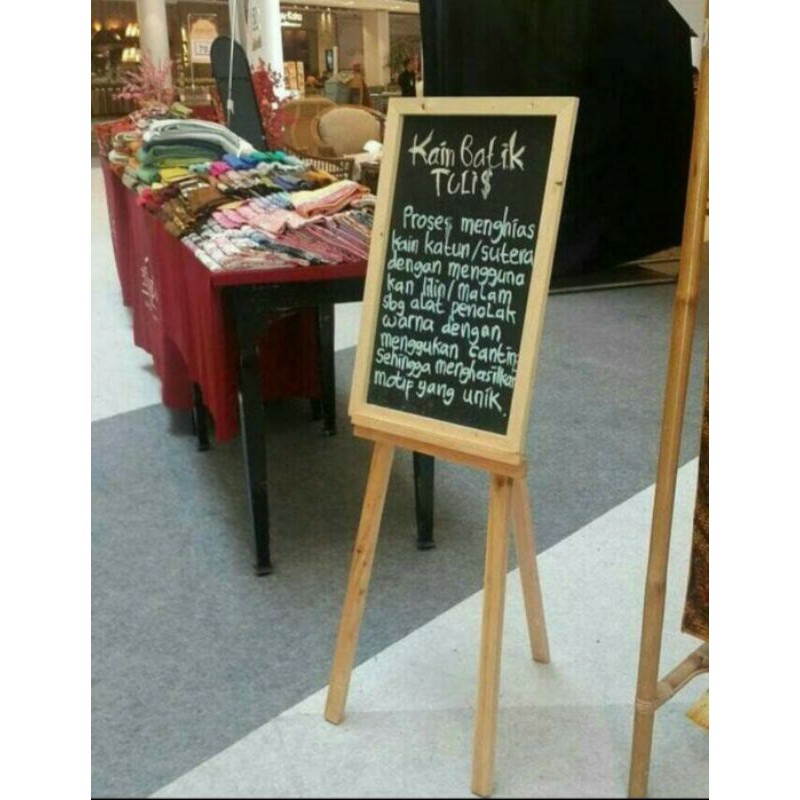 Kain Batik
TULIS
Proses menghias
kain katun/sutera
dengan mengguna
kan lilin/malam
sbg alat penolak
warna dengan
menggukan canting
sehingga menghasilkan
motif yang unik.